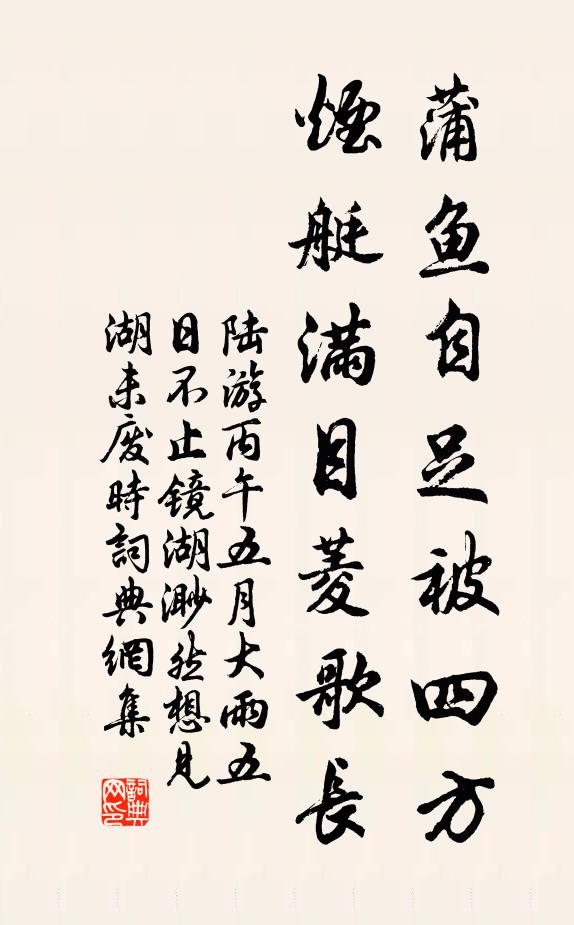 蒲鱼自足被四方
煙艇滿目菱歌長
陆游丙午五月大雨五
日不止镜湖渺然想见
湖未废時詞典網集
詞典网印